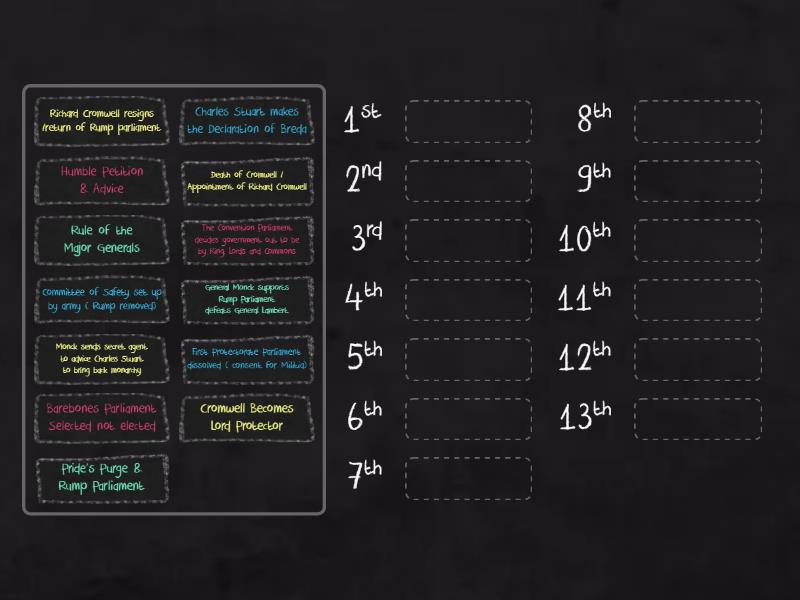 Richard Cromwell resigns
/return of Rump parliament
Charles Stuart makes
the Declaration of Breda
Humble Petition
& Advice
Death of Cromwell /
Appointment of Richard Cromwell
Rule of the
Major Generals
The Convention Parliament
decides government out to be
by King, Lords and Commons
Committee of Safety set up
by army ( Rump removed)
General Monck supports
Rump Parliament
defeats General Lambert
Monck sends secret agent
to advice Charles Stuart
to bring back monarchy
First Protectorate Parliament
dissolved ( consent for Militia)
Barebones Parliament
Selected not elected
Cromwell Becomes
Lord Protector
Pride's Purge &
Rump Parliament
1st
2nd
3rd
4th
5th
6th
7th
8th
9th
10th
11th
12th
13th